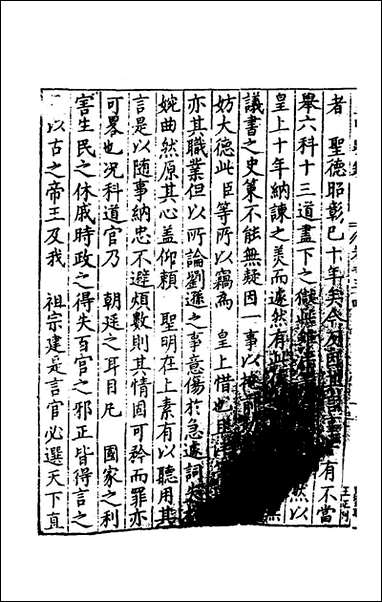 者 聖德昭彰已十年矣今 有不當
舉六科十三道盡下之 然以
皇上十年納諫之美而遽然有此
議書之史策不能無疑因一事以
妨大德此臣等所以竊為 皇上惜也
亦其職業但以所論劉遜之事意傷於急遽詞失
婉曲然原其心盖仰頼 聖明在上素有以聽用其
言是以随事納忠不避煩數則其情固可矜而罪亦
可畧也况科道官乃 朝廷之耳目凡 國家之利
害生民之休戚時政之得失百官之邪正皆得言之
以古之帝王及我 祖宗建言官必選天下直